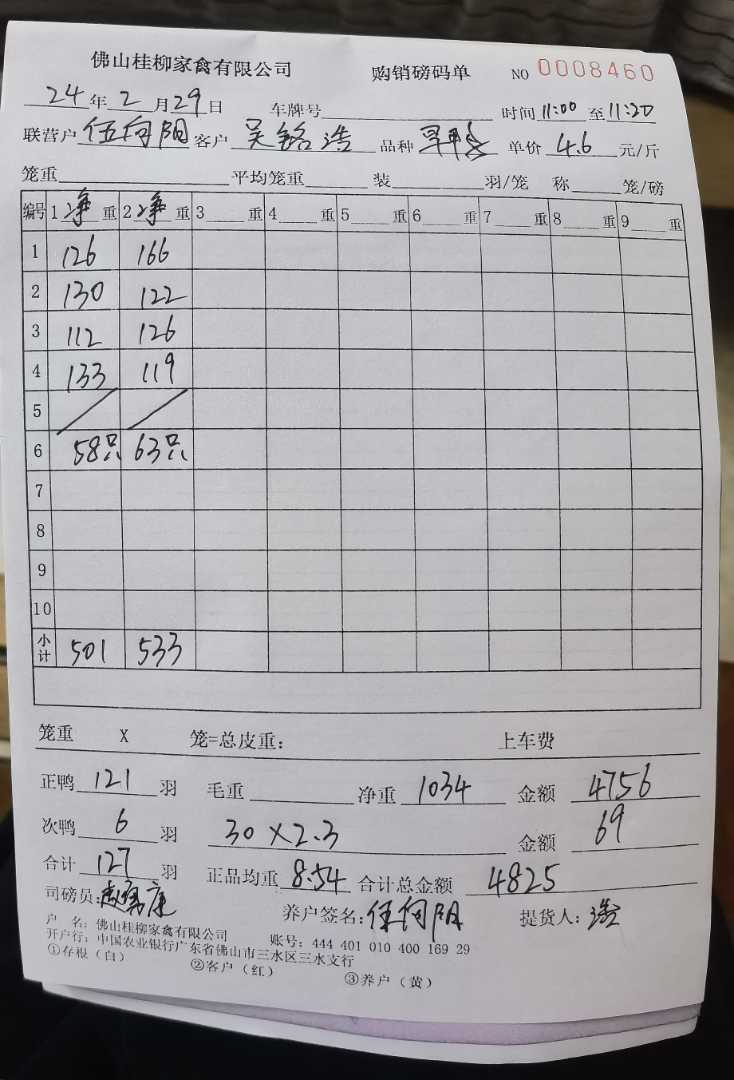 佛山桂柳家禽有限公司 购销磅码单 NO 0008460
24年2月29日 车牌号 时间11:00至11:20
联营户 伍向阳 客户 吴铭浩 品种 单价 4.6 元/斤
笼重 平均笼重 装 羽/笼 称 笼/磅
编号 1 净 重 2 净 重 3 重 4 重 5 重 6 重 7 重 8 重 9 重
1 126 166
2 130 122
3 112 126
4 133 119
5 / /
6 58只 63只
7
8
9
10
小计 501 533
笼重 X 笼=总皮重: 上车费
正鸭 121 羽 毛重 净重 1034 金额 4756
次鸭 6 羽 30×2.3 金额 69
合计 127 羽 正品均重 8.54 合计总金额 4825
司磅员: 养户签名: 伍向阳 提货人: 浩
户 名: 佛山桂柳家禽有限公司 账号: 444 401 010 400 169 29
开户行: 中国农业银行广东省佛山市三水区三水支行
①存根(白) ②客户(红) ③养户(黄)